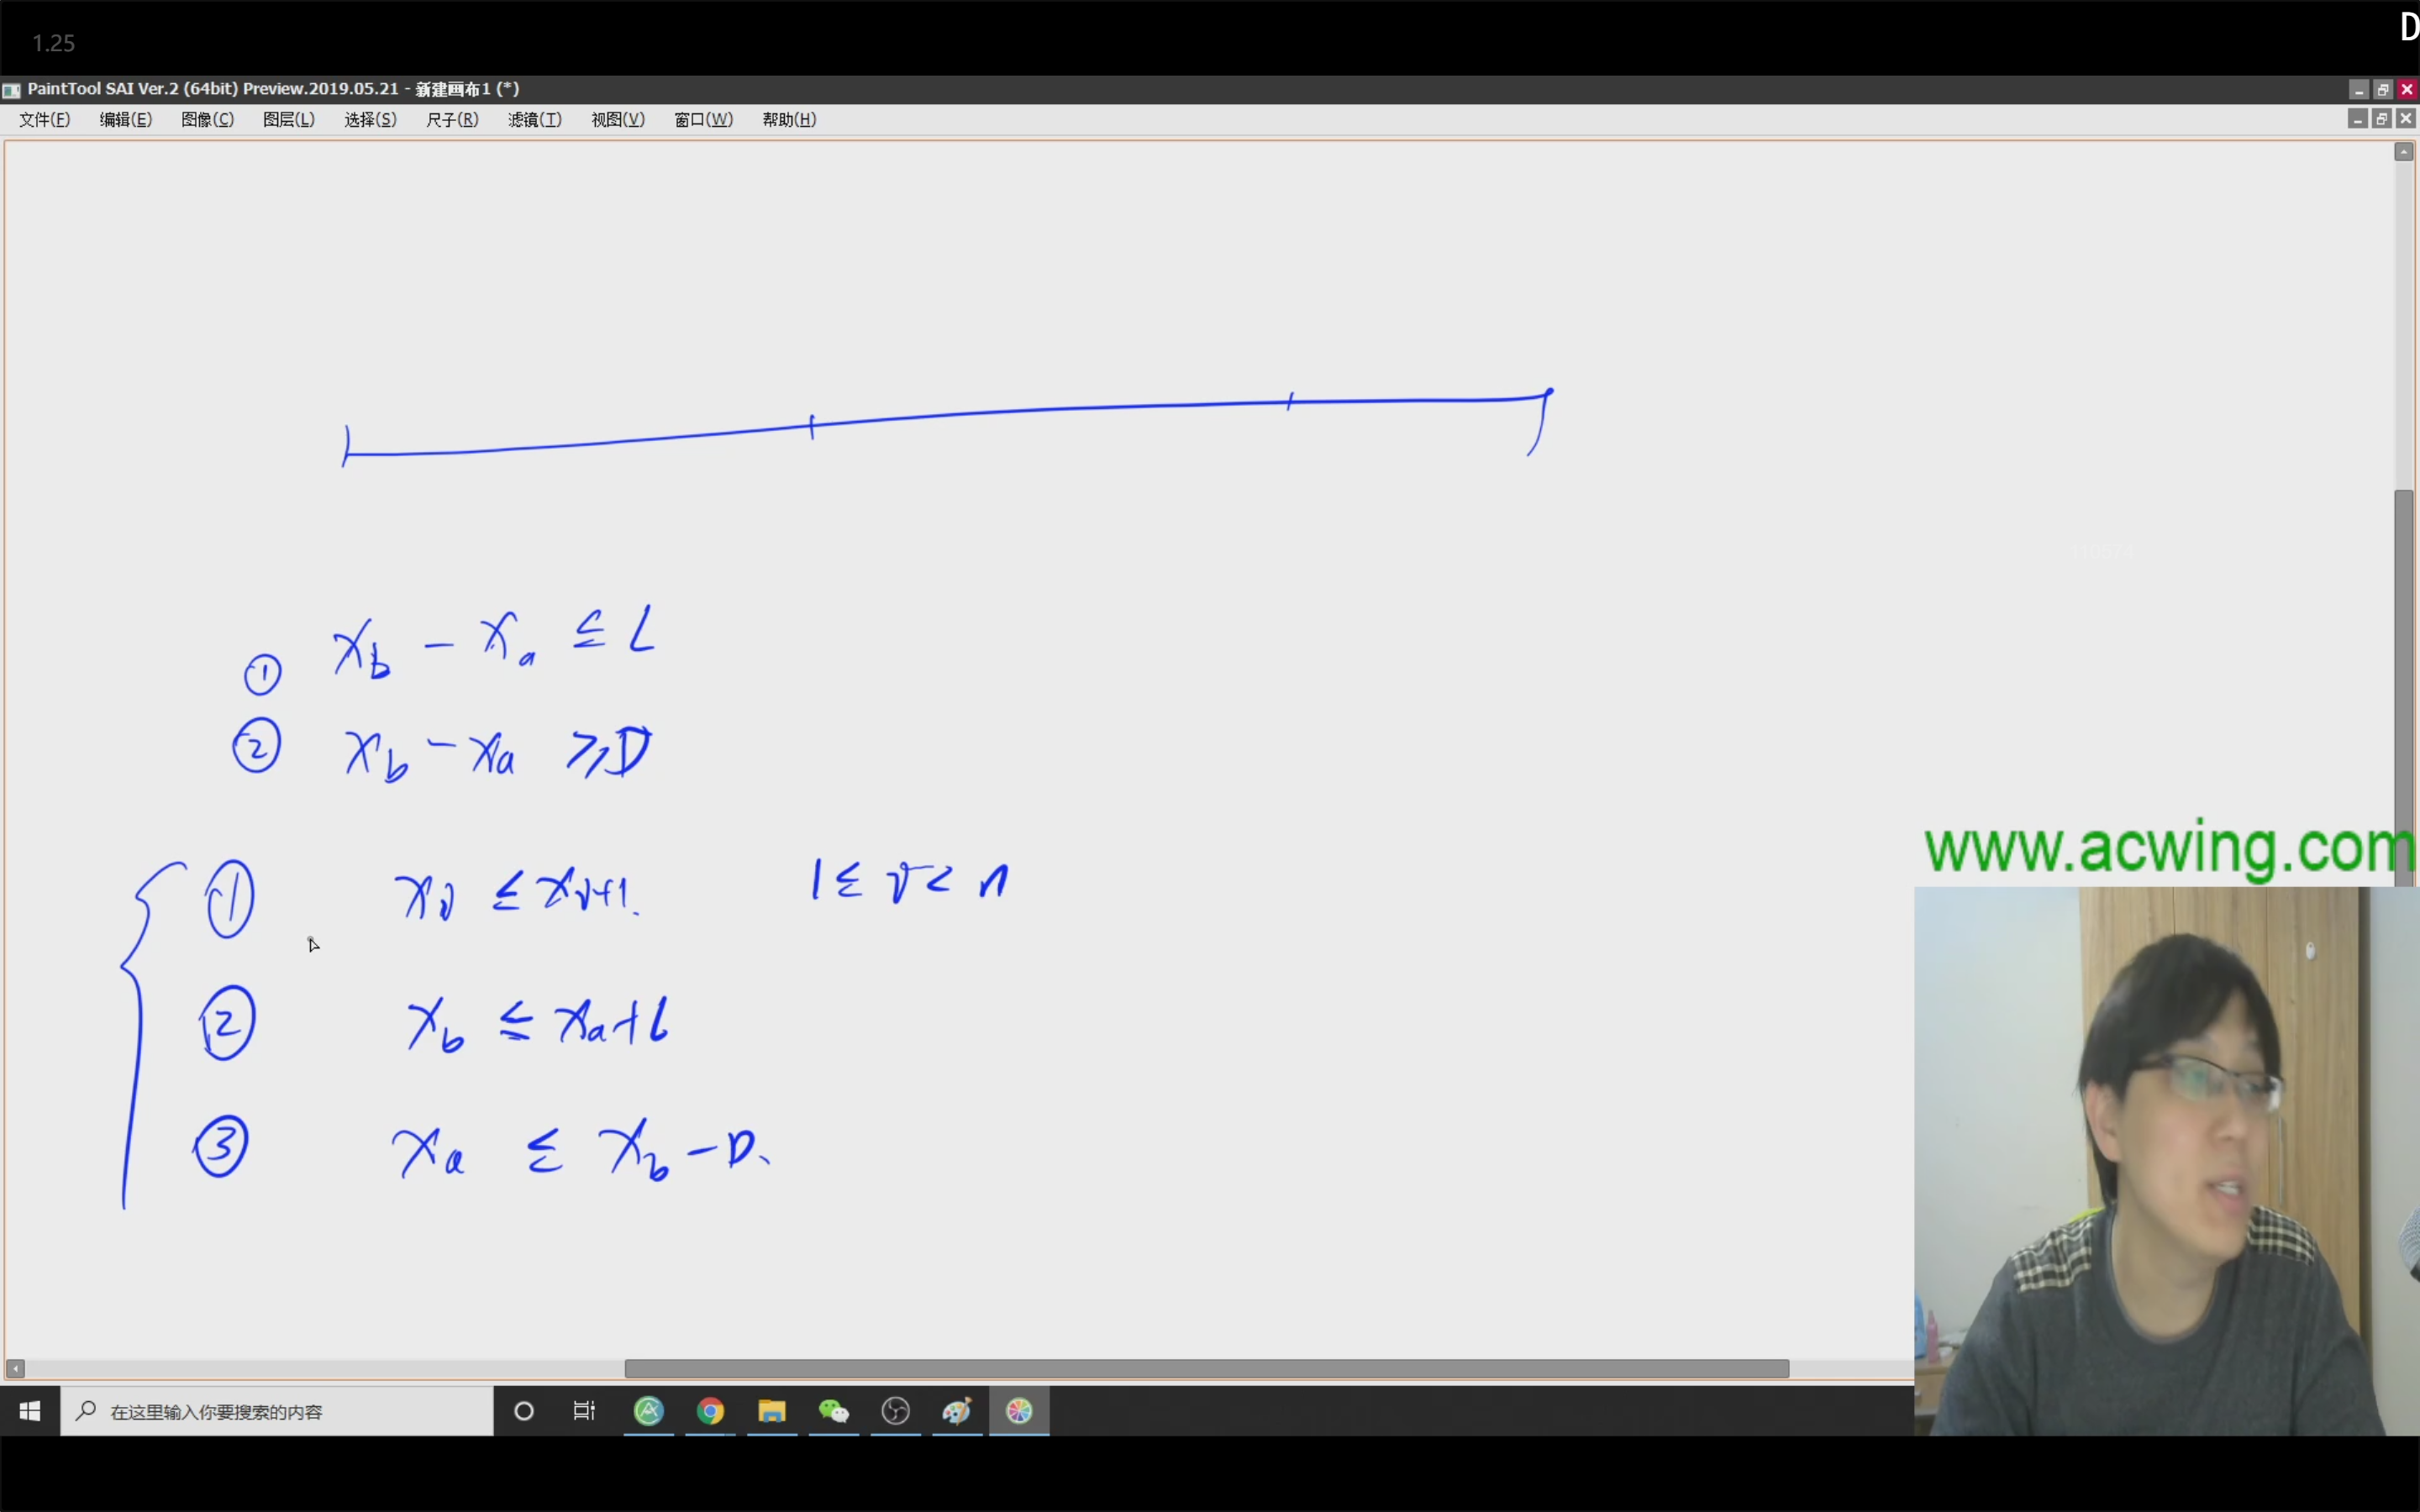 1.25
D
PaintTool SAI Ver.2 (64bit) Preview.2019.05.21 - 新建画布1 (*)
文件(F) 编辑(E) 图像(C) 图层(L) 选择(S) 尺子(R) 滤镜(T) 视图(V) 窗口(W) 帮助(H)
① x_b - x_a ≤ L
② x_b - x_a ≥ D
① x_i ≤ x_{i+1}. 1 ≤ i < n
② x_b ≤ x_a + L
③ x_a ≤ x_b - D.
www.acwing.com
在这里输入你要搜索的内容